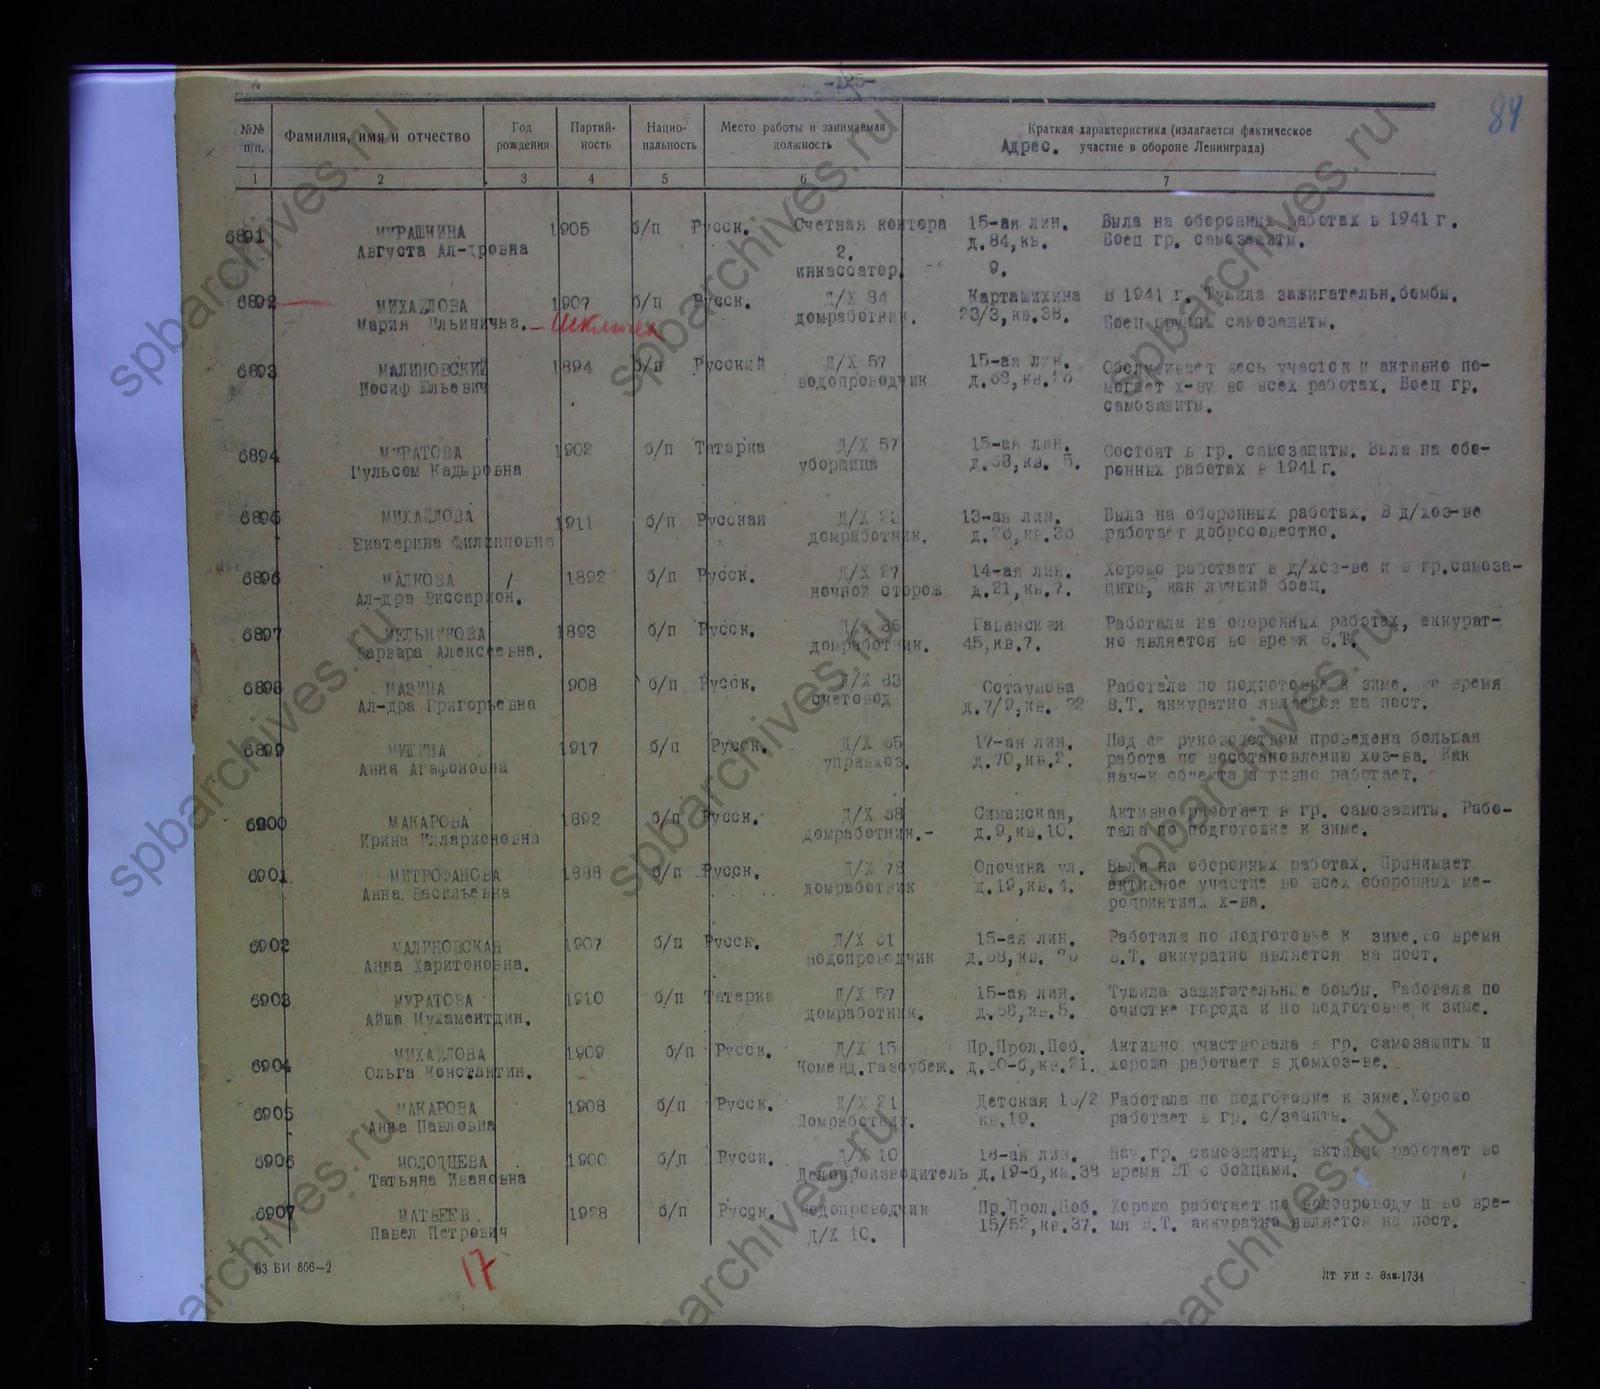 84
№№ п/п. Фамилия, имя и отчество Год рождения Партий-ность Нацио-нальность Место работы и занимаемая должность Адрес. Краткая характеристика (излагается фактическое участие в обороне Ленинграда)
1 2 3 4 5 6 7
6891 МУРАШКИНА 1905 б/п Русск. Счетная контора 15-ая лин. Была на оборонных работах в 1941 г.
Августа Ал-дровна 2. д.84,кв. Боец гр. самозащиты.
инкассатор. 9.
6892 МИХАЙЛОВА 1907 б/п Русск. Д/Х 84 Карташихина В 1941 г. Тушила зажигательн.бомбы.
Мария Ильинична. домработник. 23/3,кв.38. Боец группы самозащиты.
6893 МАЛИНОВСКИЙ 1894 б/п Русский Д/Х 57 15-ая лин. Обслуживает весь участок и активно по-
Иосиф Юльевич водопроводчик д.68,кв.26 могает х-ву во всех работах. Боец гр.
самозащиты.
6894 МУРАТОВА 1902 б/п Татарка Д/Х 57 15-ая лин. Состоит в гр. самозащиты. Была на обо-
Гульсом Кадыровна уборщица д.68,кв. 5. ронных работах в 1941 г.
6895 МИХАЙЛОВА 1911 б/п Русская Д/Х 13-ая лин. Была на оборонных работах. В д/хоз-ве
Екатерина Филипповна домработник. д.26,кв.36 работает добросовестно.
6896 МАЛКОВА 1892 б/п Русск. Д/Х 27 14-ая лин. Хорошо работает в д/хоз-ве и в гр.самоза-
Ал-дра Виссарион. ночной сторож д.21,кв.7. щиты, как лучший боец.
6897 МЕЛЬНИКОВА 1893 б/п Русск. Д/Х 86 Гаванская Работала на оборонных работах, аккурат-
Варвара Алексеевна. домработник. 45,кв.7. но является во время В.Т.
6898 МАЗИНА 1908 б/п Русск. Д/Х 83 Остоумова Работала по подготовке к зиме. Во время
Ал-дра Григорьевна счетовод д.7/9,кв. 32 В.Т. аккуратно является на пост.
6899 МИШИНА 1917 б/п Русск. Д/Х 65 17-ая лин. Под ее руководством проведена большая
Анна Агафоновна управхоз. д.70,кв.2. работа по восстановлению хоз-ва. Как
нач-к объекта активно работает.
6900 МАКАРОВА 1892 б/п Русск. Д/Х 68 Симанская, Активно работает в гр. самозащиты. Рабо-
Ирина Илларионовна домработник.- д.9,кв.10. тала по подготовке к зиме.
6901 МИТРОФАНОВА 1888 б/п Русск. Д/Х 78 Опочина ул. Была на оборонных работах. Принимает
Анна Васильевна домработник д.19,кв.4. активное участие во всех оборонных ме-
роприятиях х-ва.
6902 МАЛИНОВСКАЯ 1907 б/п Русск. Д/Х 61 15-ая лин. Работала по подготовке к зиме.Во время
Анна Харитоновна. водопроводчик д.68,кв. 26 В.Т. аккуратно является на пост.
6903 МУРАТОВА 1910 б/п Татарка Д/Х 57 15-ая лин. Тушила зажигательные бомбы. Работала по
Айша Мухаментдин. домработник. д.68,кв.5. очистке города и по подготовке к зиме.
6904 МИХАЙЛОВА 1909 б/п Русск. Д/Х 15 Пр.Прол.Поб. Активно участвовала в гр. самозащиты и
Ольга Константин. Коменд.газоубеж. д.60-б,кв.21. хорошо работает в домхоз-ве.
6905 МАКАРОВА 1908 б/п Русск. Д/Х 21 Детская 16/2 Работала по подготовке к зиме.Хорошо
Анна Павловна Домработник. кв.19. работает в гр. с/защиты.
6906 МОЛОДЦЕВА 1900 б/п Русск. Д/Х 10 18-ая лин. Нач.гр. самозащиты, активно работает во
Татьяна Ивановна Делопроизводитель д.19-б,кв.38 время ВТ с бойцами.
6907 МАТВЕЕВ 1928 б/п Русск. водопроводчик Пр.Прол.Поб. Хорошо работает по водопроводу и во вре-
Павел Петрович Д/Х 10. 15/52,кв.37. мя В.Т. аккуратно является на пост.
17
БЗ БИ 866—2
ЛТ УН З. Зак.1734
spbarchives.ru